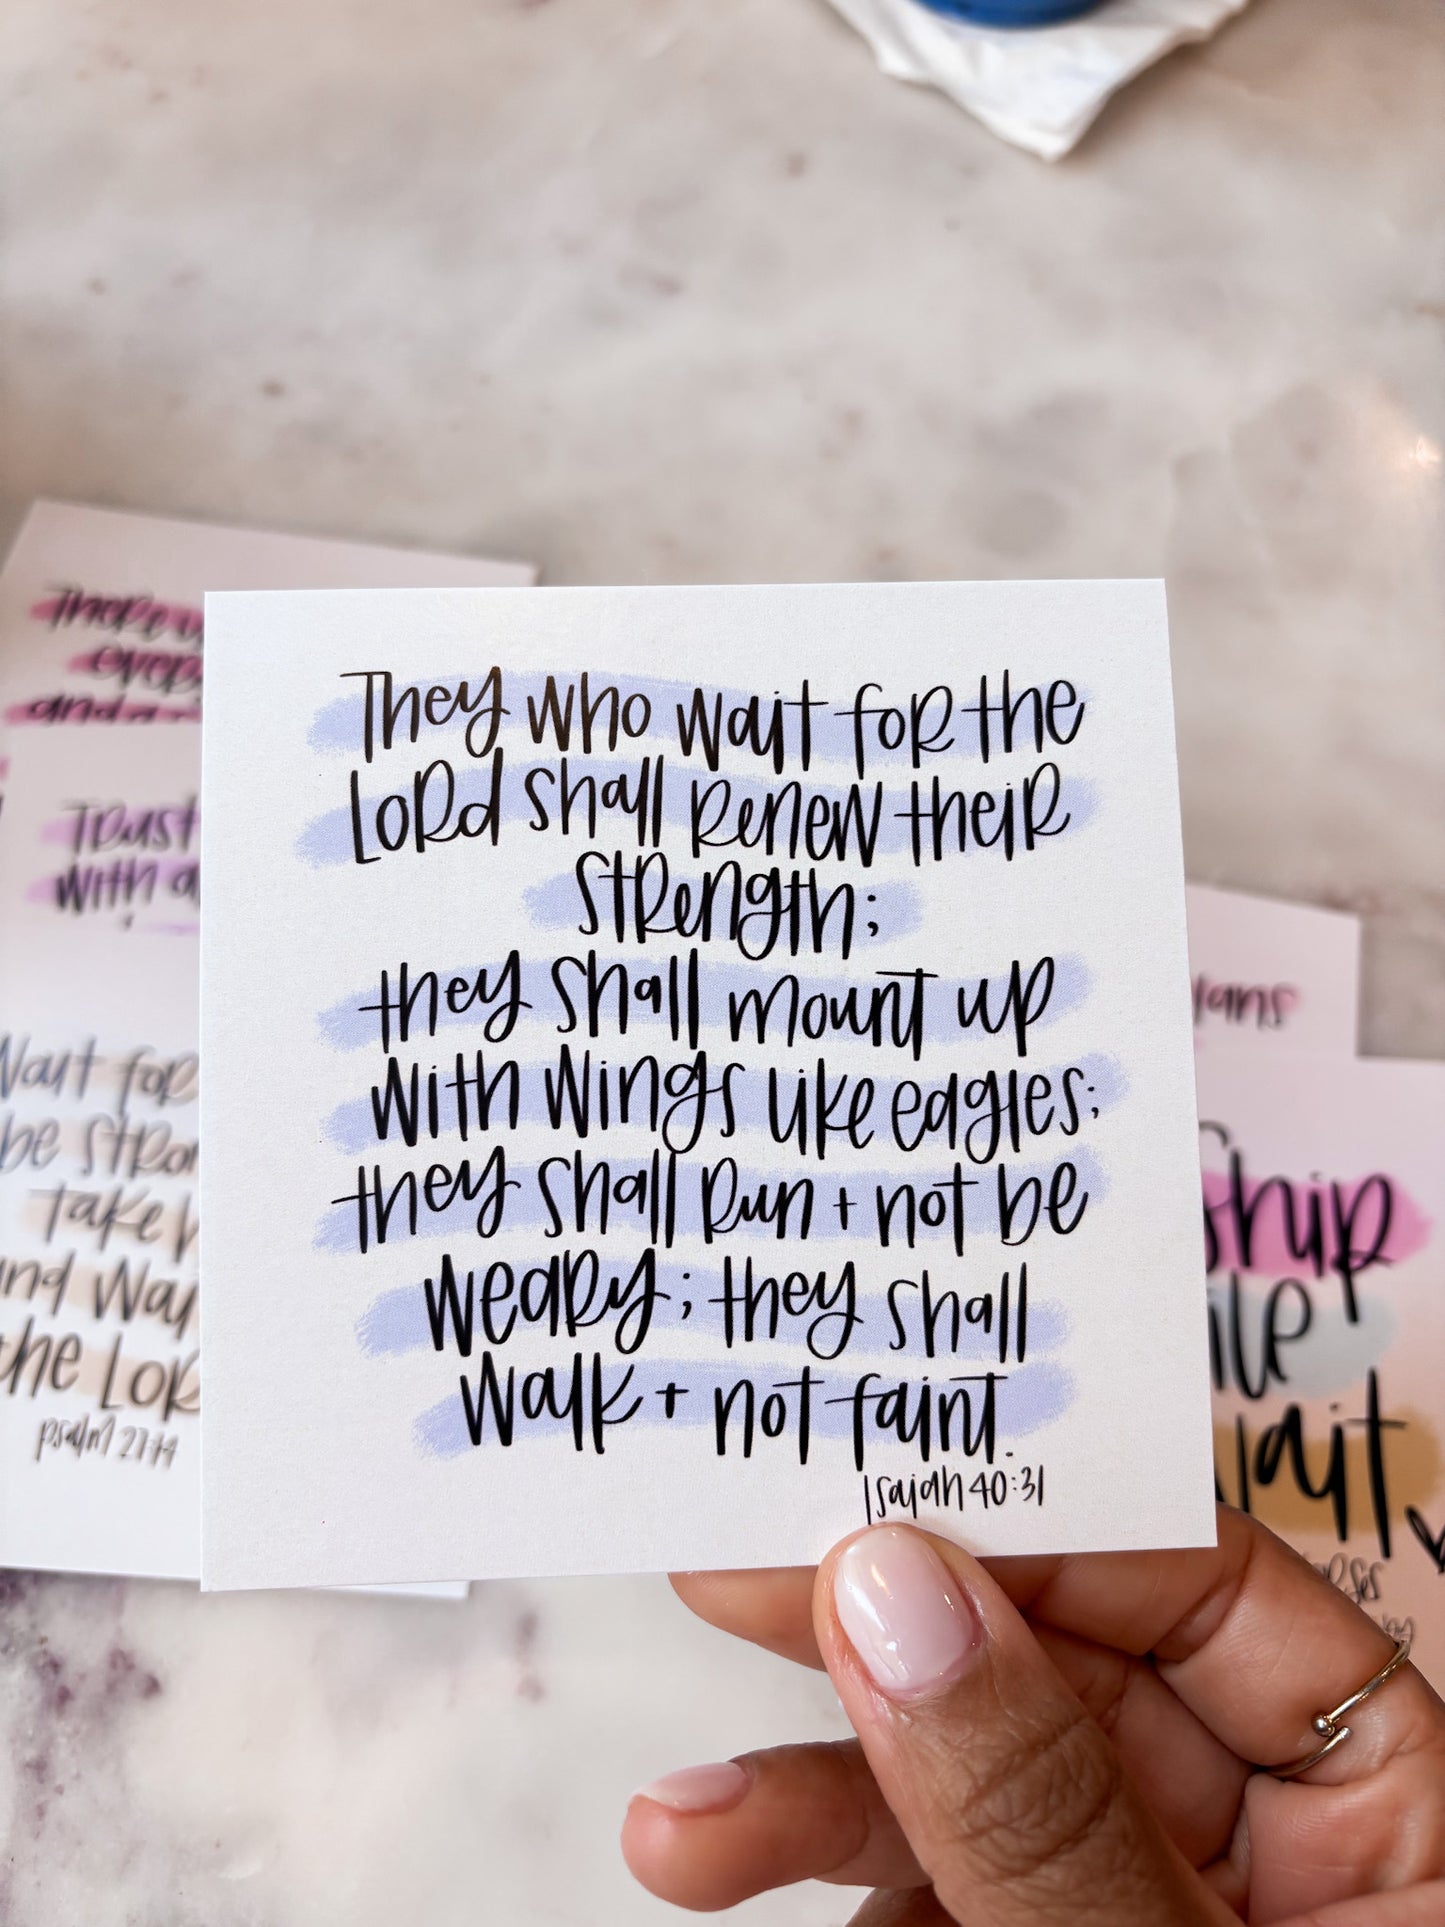 They who wait for the
Lord shall renew their
strength;
they shall mount up
with wings like eagles;
they shall run + not be
weary; they shall
walk + not faint.
Isaiah 40:31
There
and
Trust
with
Wait for
be
Take
and
the Lor
psalm 27:14
lans
ship
ait